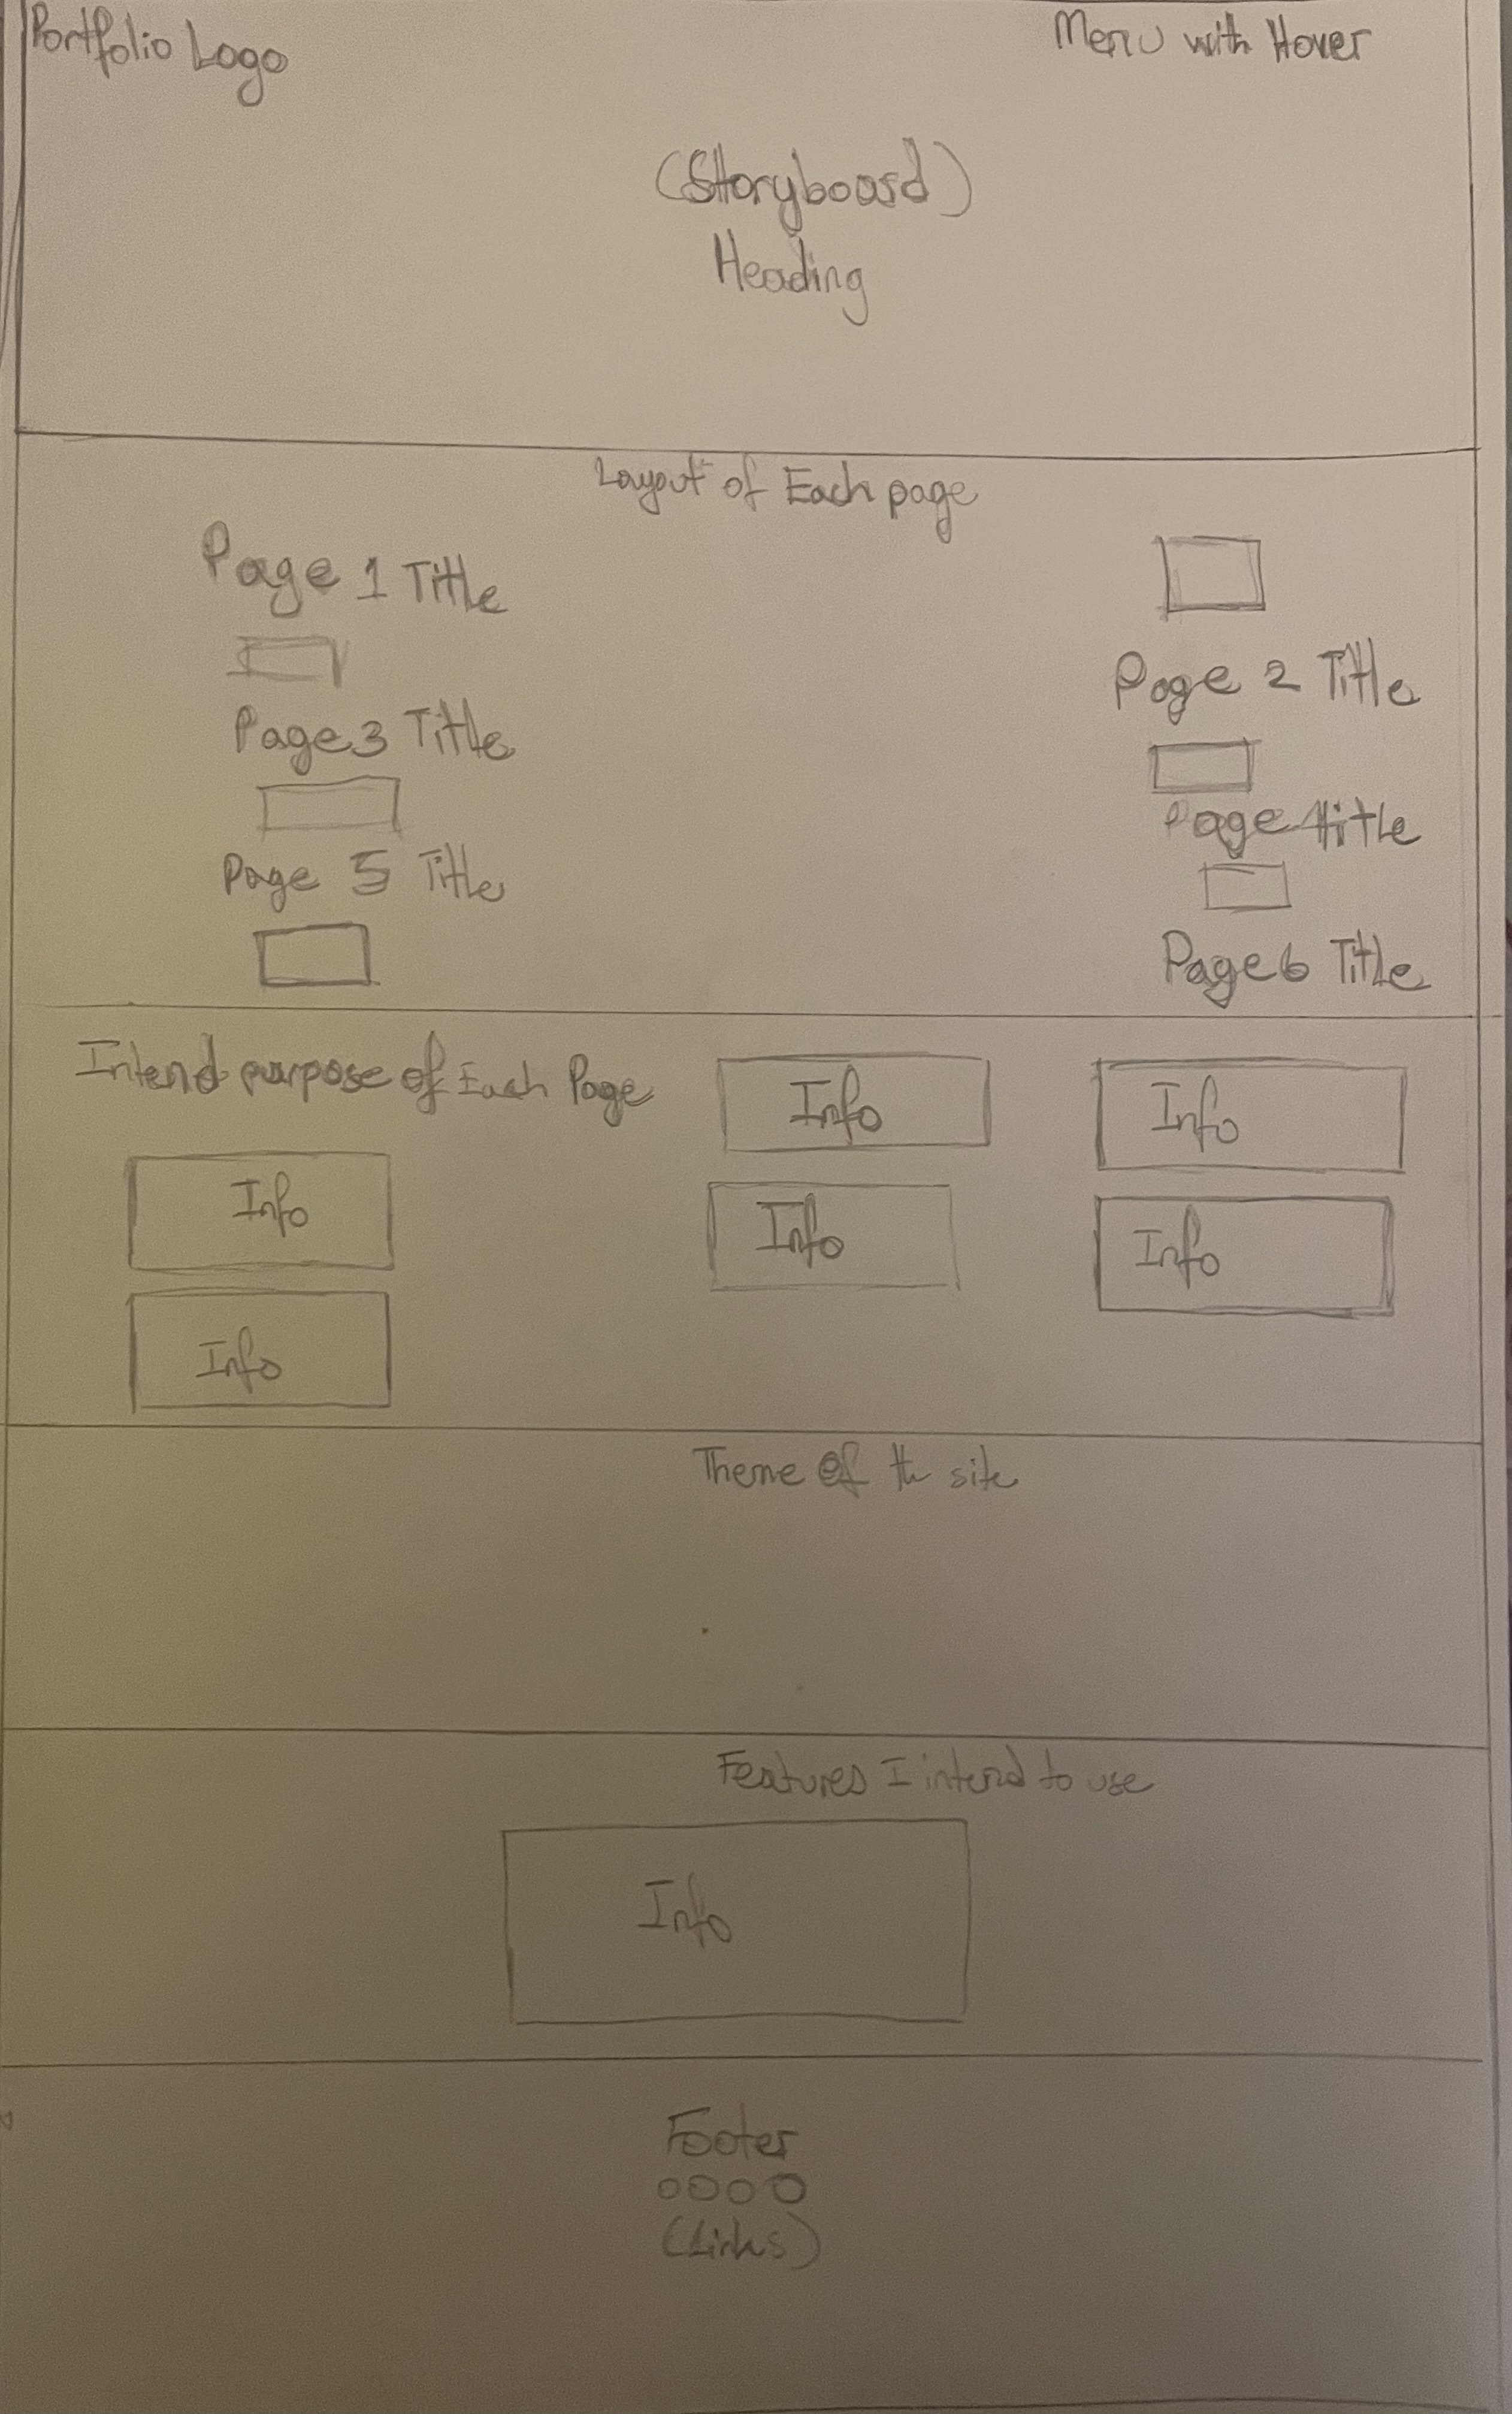 Portfolio Logo
Menu with Hover
(Storyboard)
Heading
Layout of Each page
Page 1 Title
Page 2 Title
Page 3 Title
Page 4 Title
Page 5 Title
Page 6 Title
Intend purpose of Each Page
Info
Info
Info
Info
Info
Info
Theme of th site
Features I intend to use
Info
Footer
(Links)